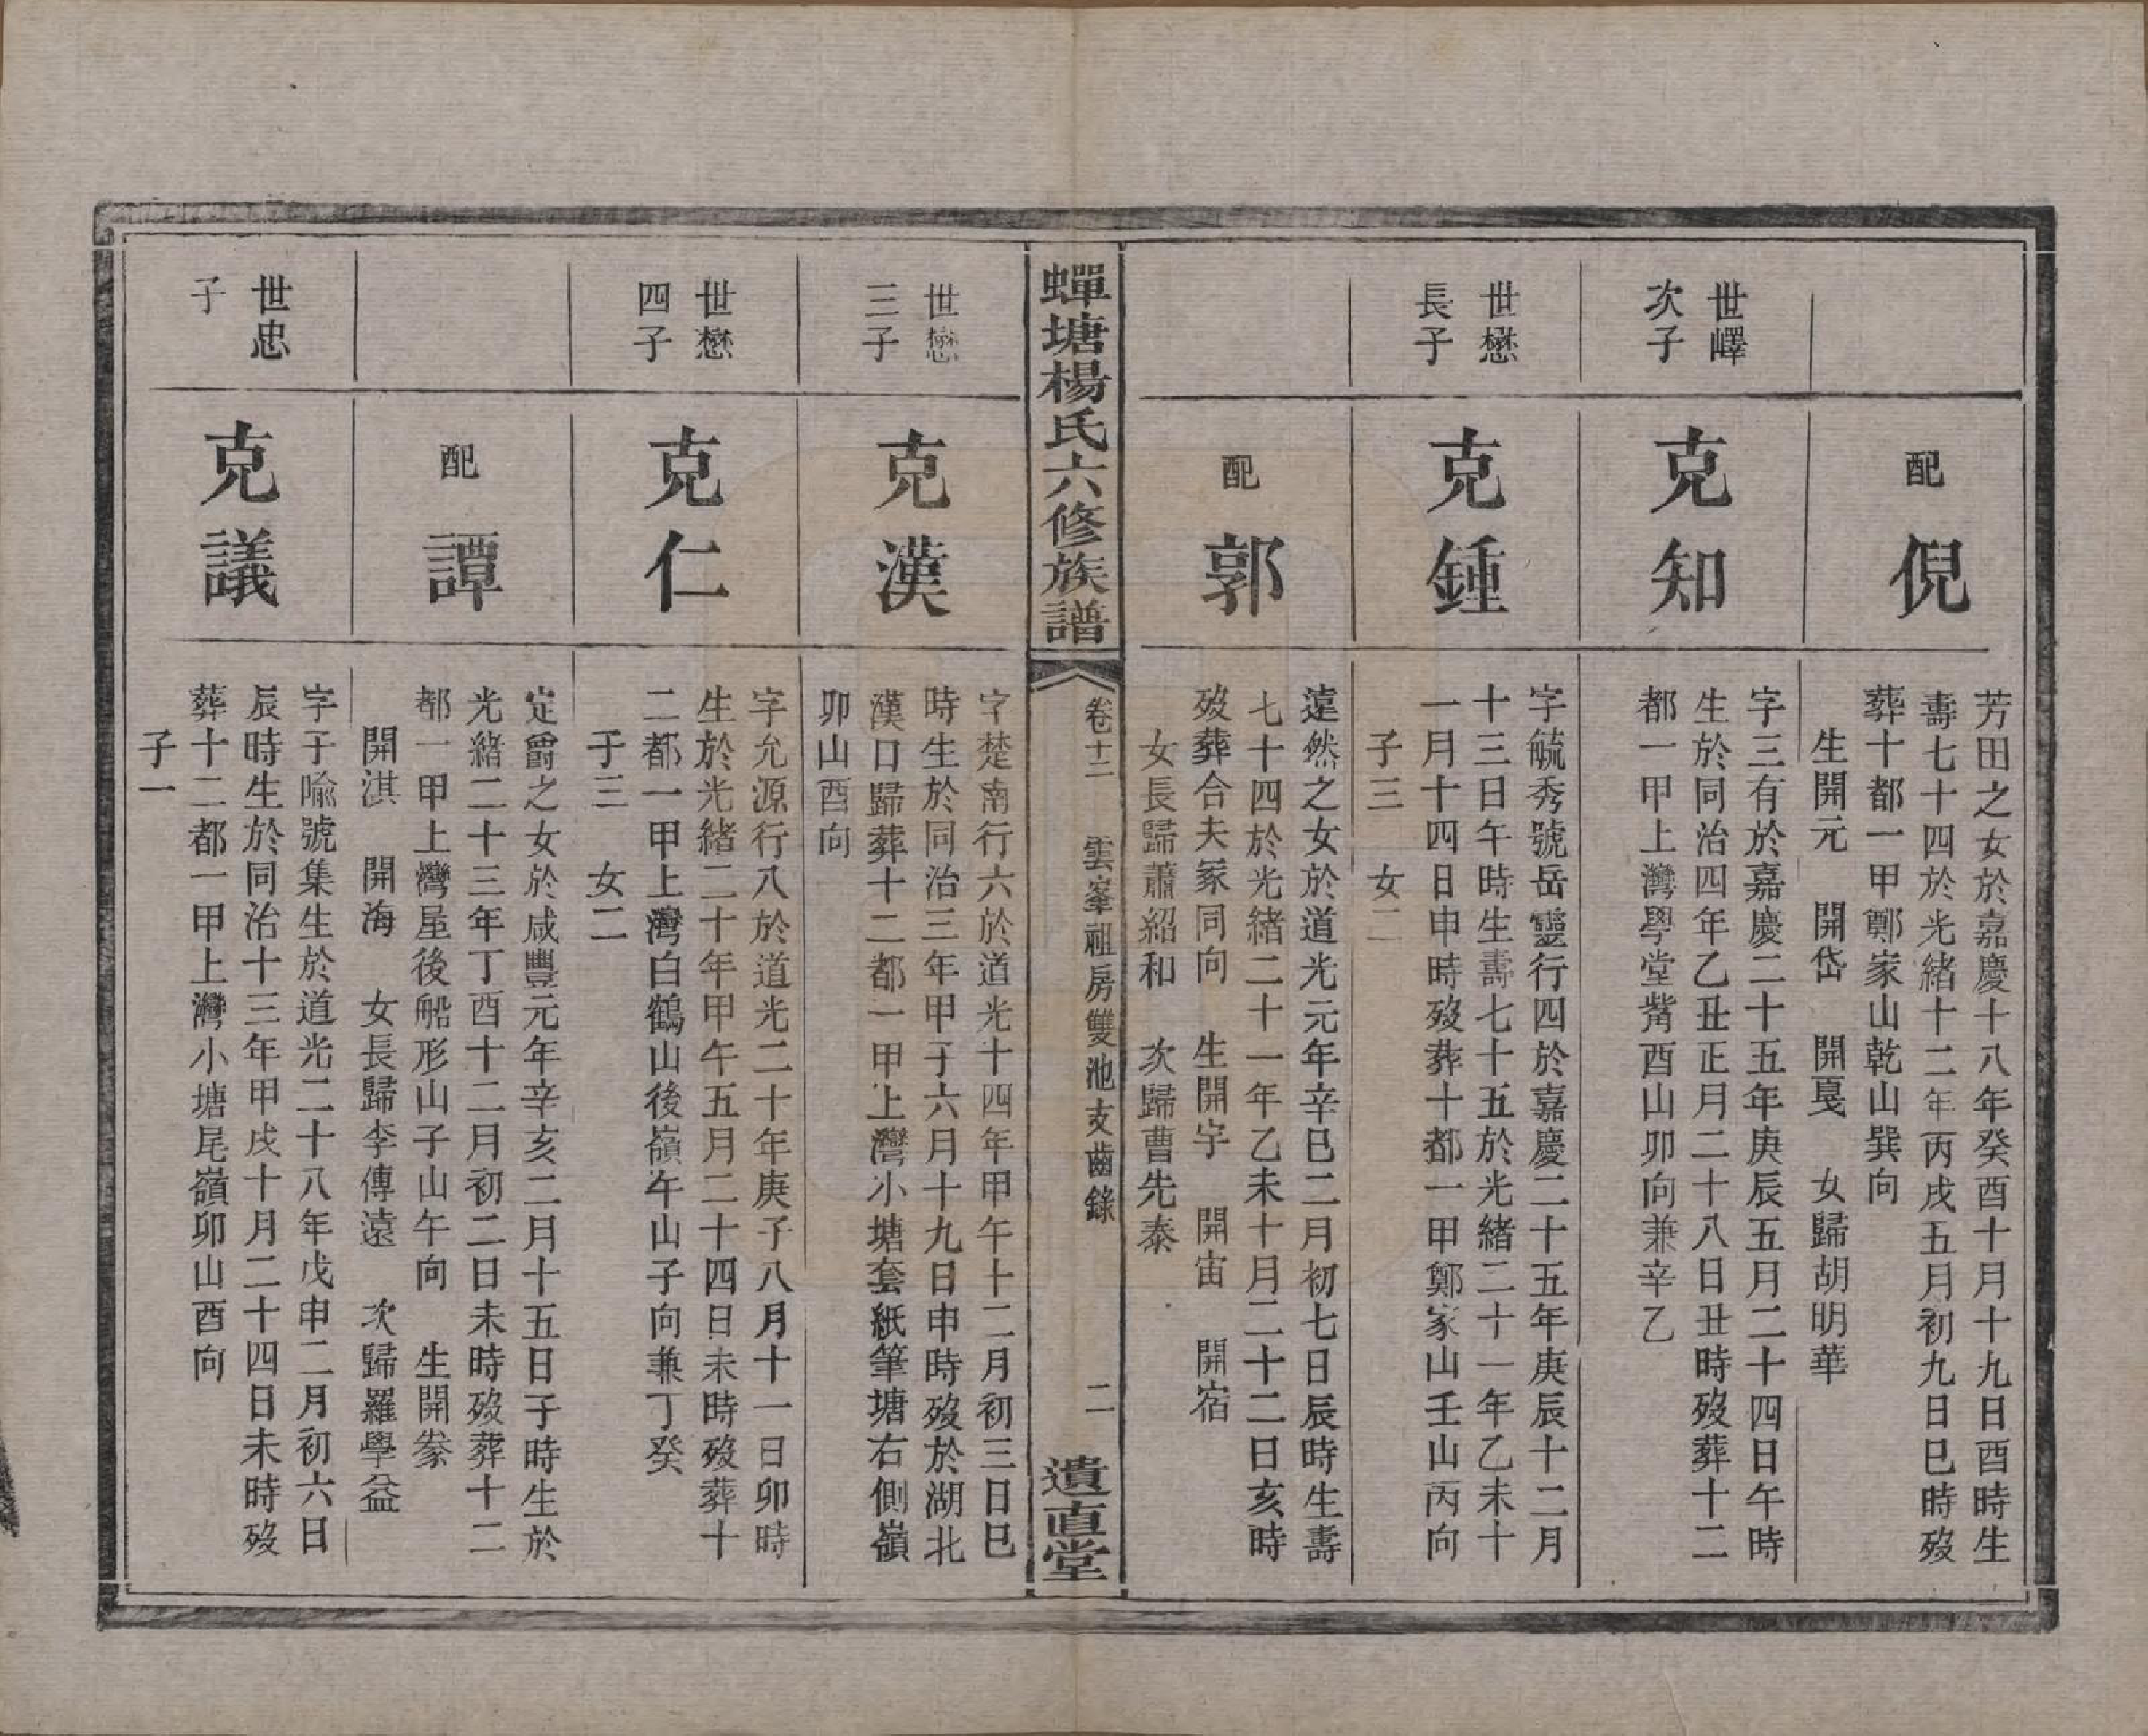 配
倪
芳田之女於嘉慶十八年癸酉十月十九日酉時生
壽七十四於光緒十二年丙戌五月初九日巳時歿
葬十都一甲鄭家山乾山巽向
生開元　開岱　開戛　女歸胡明華
世嶧
次子
克知
字三有於嘉慶二十五年庚辰五月二十四日午時
生於同治四年乙丑正月二十八日丑時歿葬十二
都一甲上灣學堂觜酉山卯向兼辛乙
世懋
長子
克鍾
字毓秀號岳靈行四於嘉慶二十五年庚辰十二月
十三日午時生壽七十五於光緒二十一年乙未十
一月十四日申時歿葬十都一甲鄭家山壬山丙向
子三　女二
配
郭
遠然之女於道光元年辛巳二月初七日辰時生壽
七十四於光緒二十一年乙未十月二十二日亥時
歿葬合夫冢同向　生開宇　開宙　開宿
女長歸蕭紹和　次歸曹先泰
蟬塘楊氏六修族譜
卷十二　雲峯祖房雙池支齒錄　二
遺直堂
世懋
三子
克漢
字楚南行六於道光十四年甲午十二月初三日巳
時生於同治三年甲子六月十九日申時歿於湖北
漢口歸葬十二都一甲上灣小塘套紙筆塘右側嶺
卯山酉向
世懋
四子
克仁
字允源行八於道光二十年庚子八月十一日卯時
生於光緒二十年甲午五月二十四日未時歿葬十
二都一甲上灣白鶴山後嶺午山子向兼丁癸
子三　女二
配
譚
定爵之女於咸豐元年辛亥二月十五日子時生於
光緒二十三年丁酉十二月初二日未時歿葬十二
都一甲上灣屋後船形山子山午向　生開豢
開淇　開海　女長歸李傳遠　次歸羅學益
世忠
子
克議
字于喻號集生於道光二十八年戊申二月初六日
辰時生於同治十三年甲戌十月二十四日未時歿
葬十二都一甲上灣小塘尾嶺卯山酉向
子一